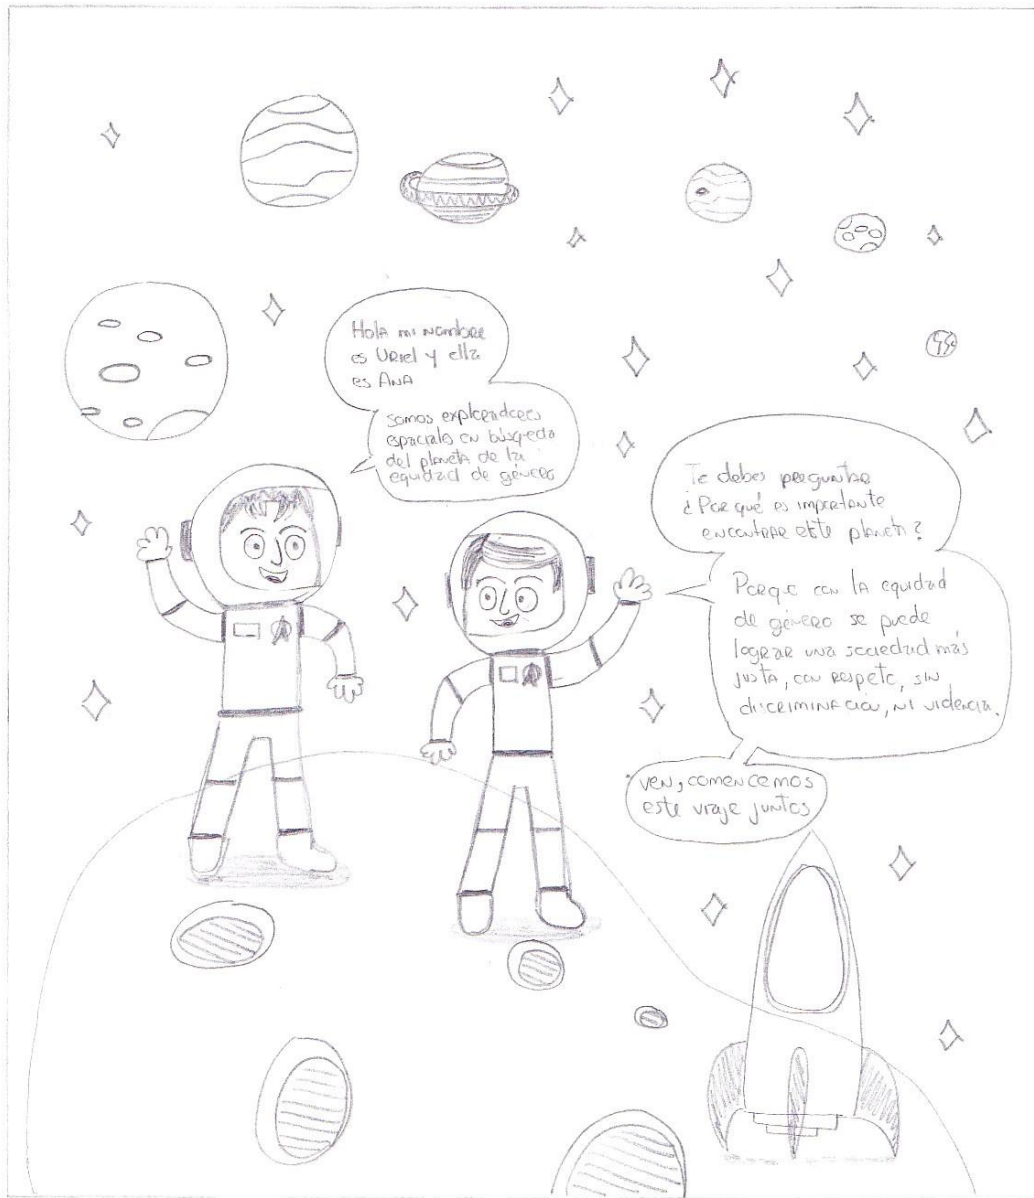 Hola mi nombre
es Uriel y ella
es Ana
somos exploradores
espaciales en búsqueda
del planeta de la
equidad de género
Te debes preguntar
¿Por qué es importante
encontrar este planeta?
Porque con la equidad
de género se puede
lograr una sociedad más
justa, con respeto, sin
discriminación, ni violencia.
ven, comencemos
este viaje juntos